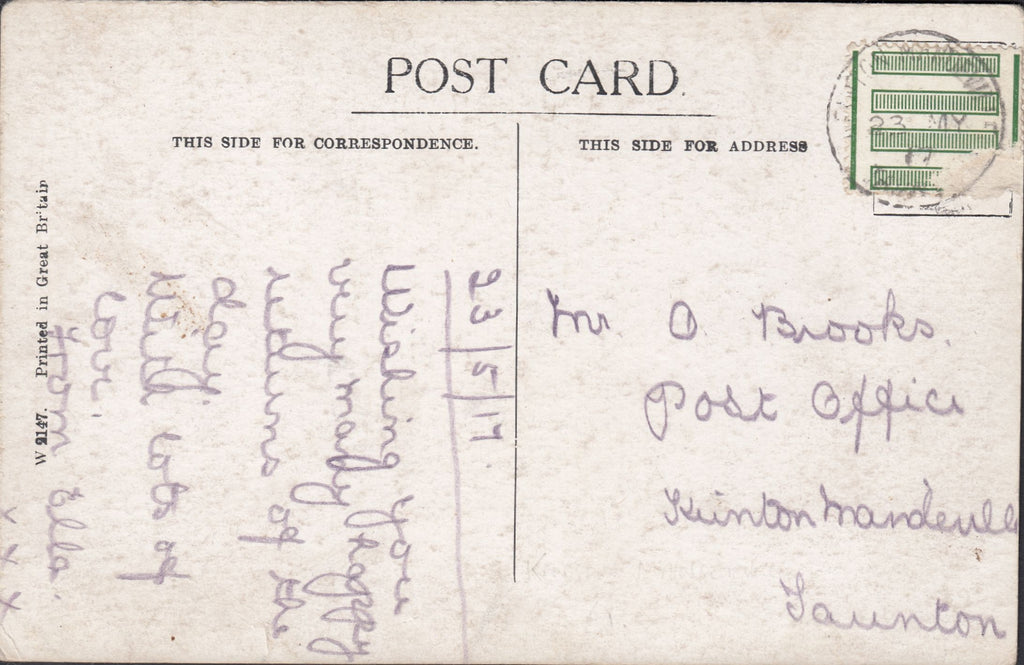 POST CARD
THIS SIDE FOR CORRESPONDENCE.
THIS SIDE FOR ADDRESS
23 MY
17
W 2147. Printed in Great Britain
23/5/17
Wishing you
very many Happy
returns of the
day.
With lots of
love.
From Ella.
x x x
Mr O Brooks.
Post Office
Kinton Mandevill
Taunton